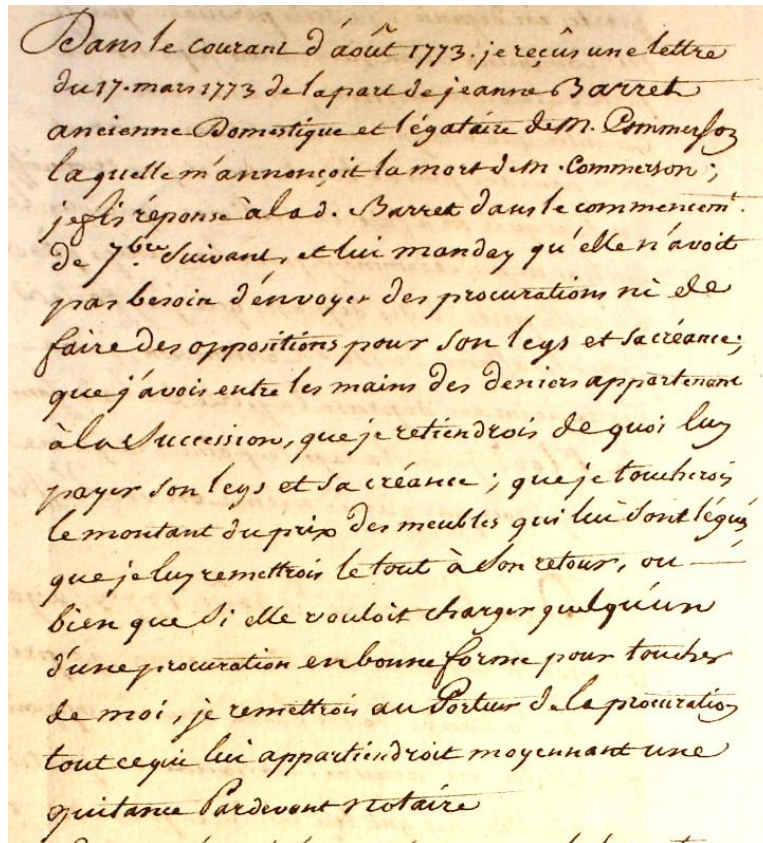 Dans le courant d'août 1773. je reçûs une lettre
du 17. mars 1773 de la part de jeanne Barret
ancienne Domestique et légataire de M. Commerson
laquelle m'annonçoit la mort de M. Commerson;
je fis réponse à lad. Barret dans le commencemt.
de 7bre. Suivant, et lui manday qu'elle n'avoit
pas besoin d'énvoyer des procurations ni de
faire des oppositions pour son legs et sa créance;
que j'avois entre les mains des deniers appartenant
à la Succession, que je retiendrois de quoi luy
payer son legs et sa créance; que je toucherois
le montant du prix des meubles qui lui sont légués,
que je luy remettrois le tout à son retour, ou —
bien que si elle vouloit charger quelqu'un
d'une procuration en bonne forme pour toucher
de moi, je remettrois au Porteur de la procuration
tout ce qui lui appartiendroit moyennant une
quitance Pardevant notaire